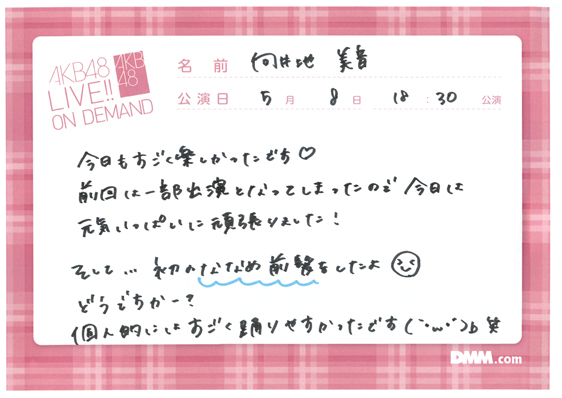 AKB48
LIVE!!
ON DEMAND
AKB
48
名前 向井地 美音
公演日 5月 8日 18:30 公演
今日もすごく楽しかったです♡
前回は一部出演となってしまったので 今日は
元気いっぱいに頑張りました!
そして… 初のななめ前髪をしたよ
どうですかー?
個人的にはすごく踊りやすかったです(˘・ω・˘)b 笑
DMM.com